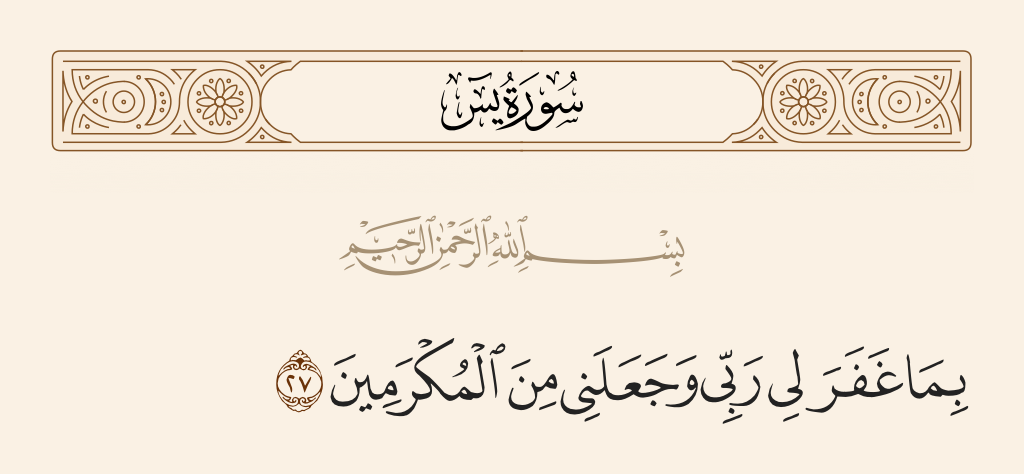 سُورَةُ يسٓ
بِسْمِ ٱللَّهِ ٱلرَّحْمَٰنِ ٱلرَّحِيمِ
بِمَا غَفَرَ لِي رَبِّي وَجَعَلَنِي مِنَ ٱلْمُكْرَمِينَ ٢٧